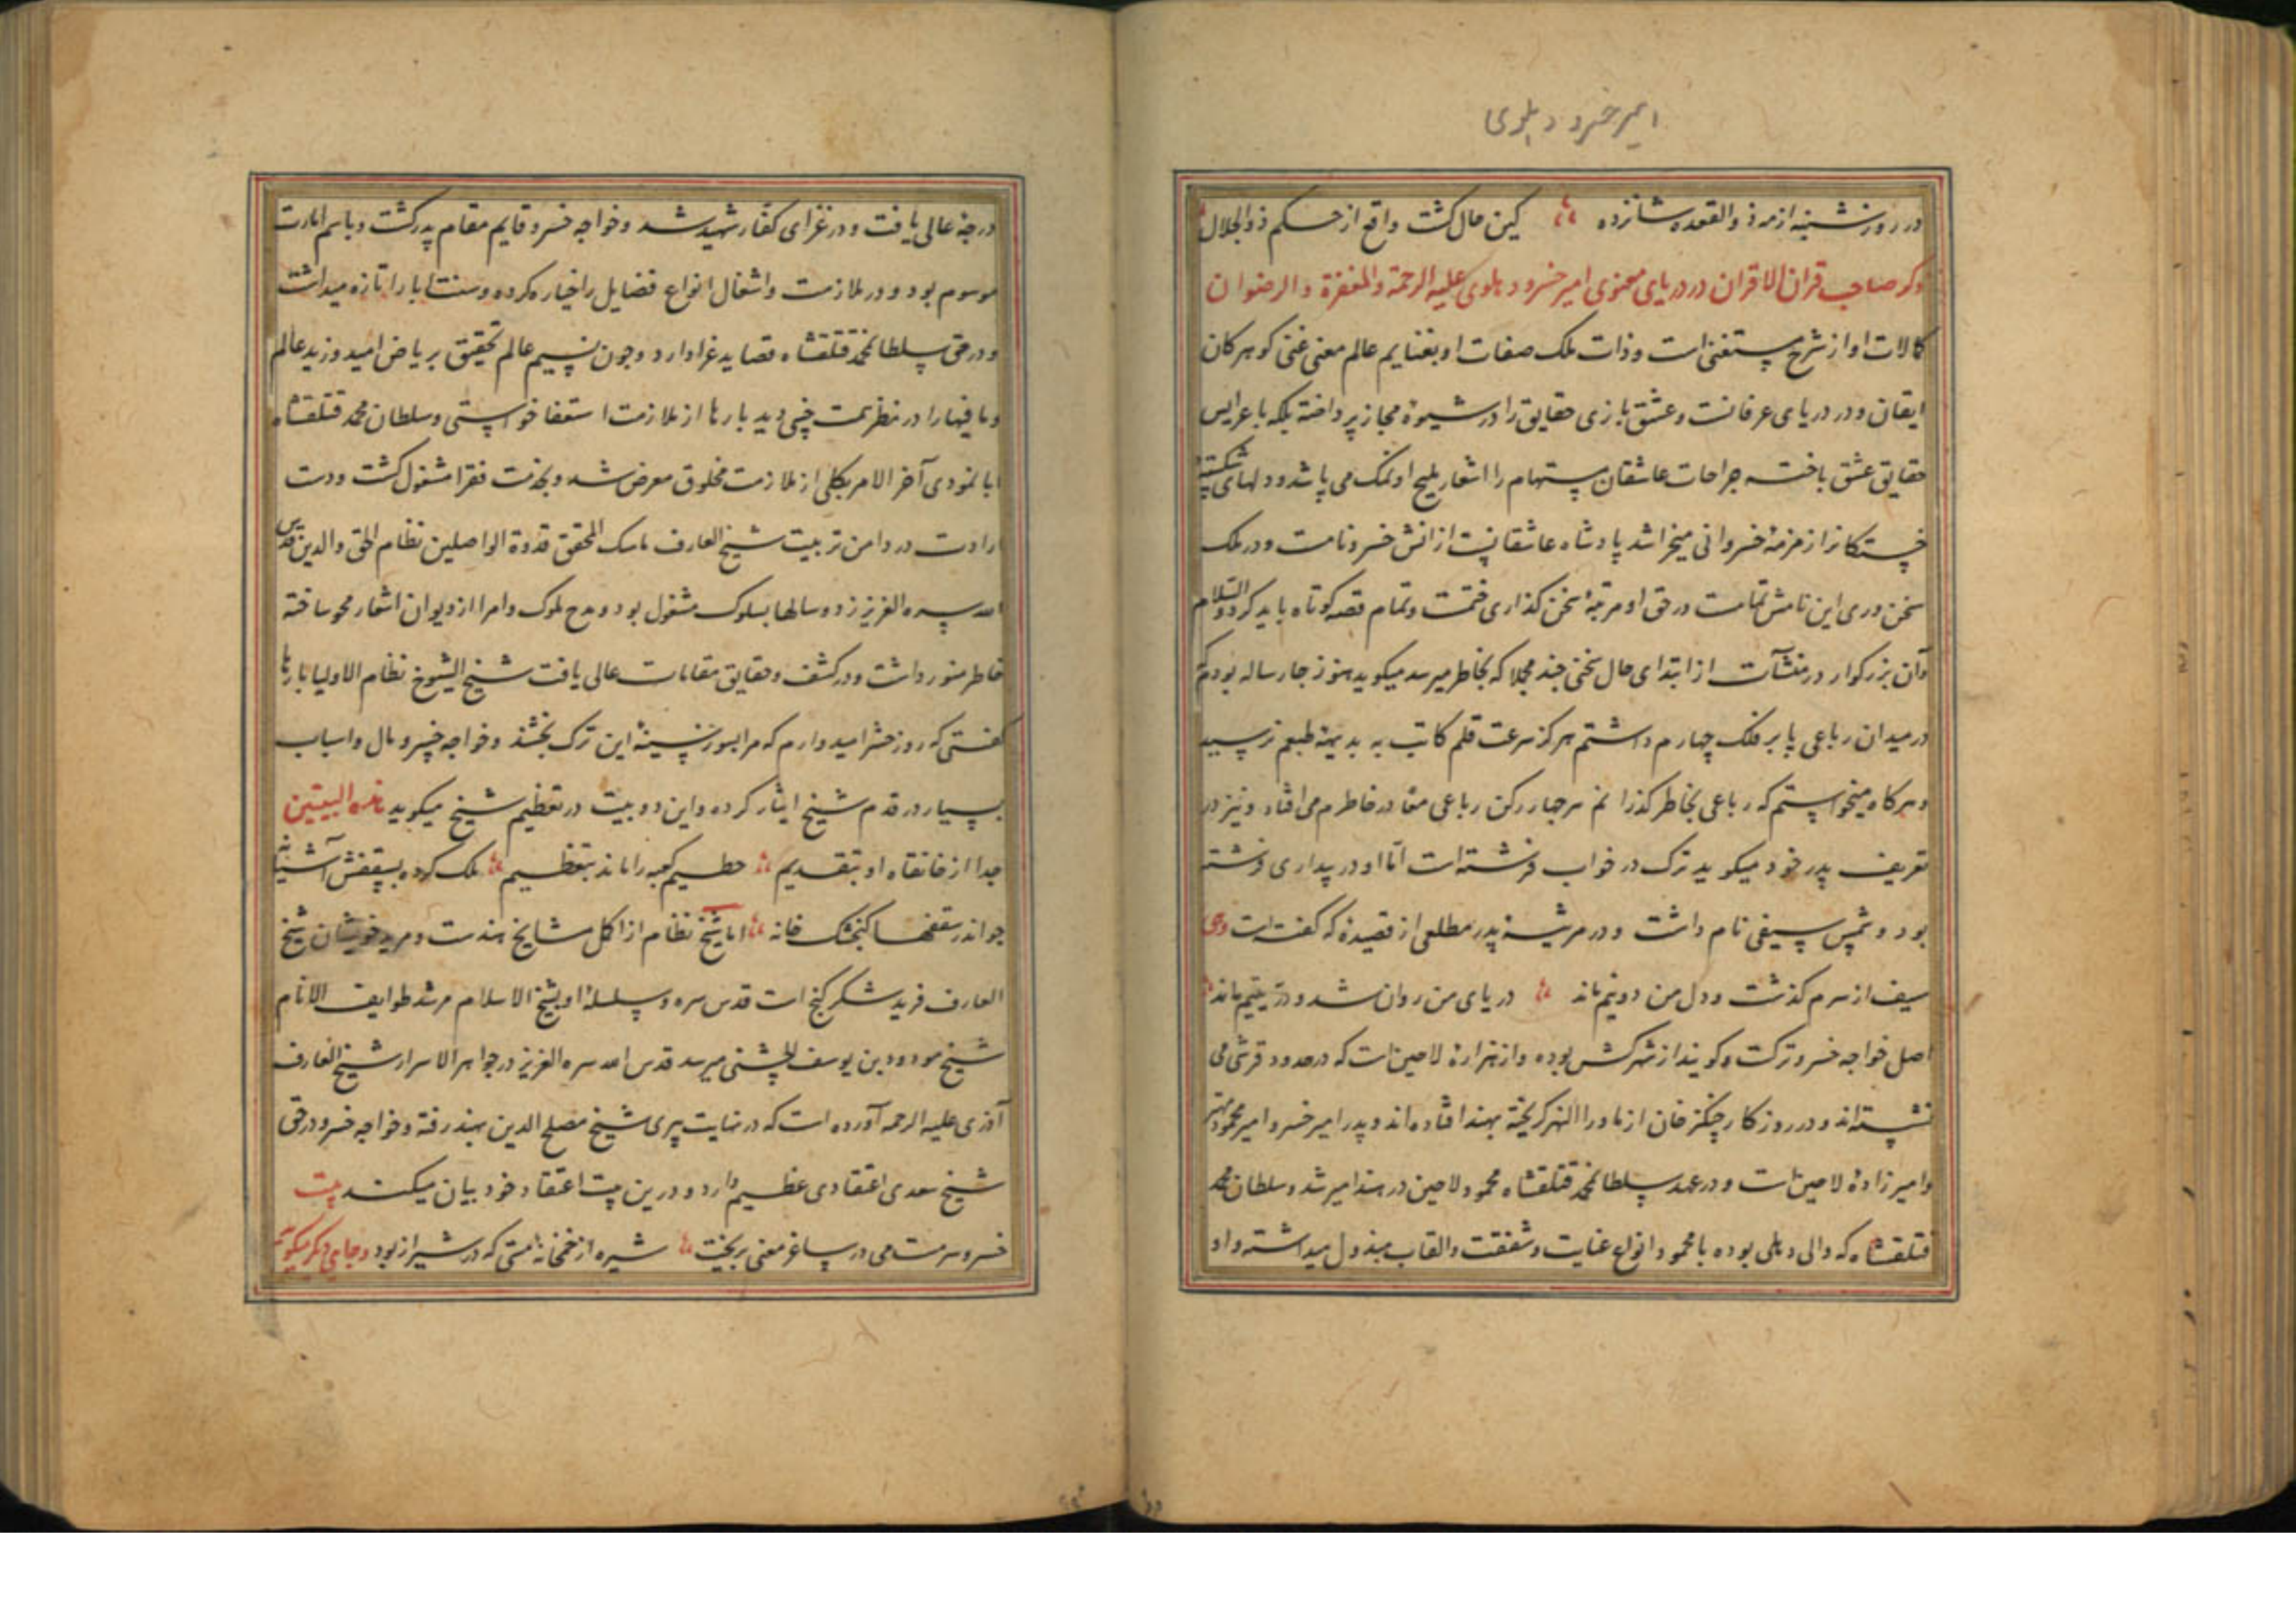 امیر خسرو دهلوی
در روز شنبه از مه ذوالقعده شانزده کین حال کشت واقع از حکم ذوالجلال
ذکر صاحب قران الاقران در دریای معنوی امیر خسرو دهلوی علیه الرحمة والمغفرة والرضوان
کمالات او از شرح مستغنی است و ذات ملک صفات او بغنایم عالم معنی غنی کوهر کان
ایقان و در دریای عرفانست و عشق بازی حقایق را در شیوهٔ مجاز پرداخته بلکه با عرایس
حقایق عشق باخته جراحات عاشقان مستهام را اشعار ملیح او نمک می پاشد و دلهای شکسته
خستکانرا زمزمهٔ خسروانی میخراشد پادشاه عاشقانست ازانش خسرو نامست و در ملک
سخن وری این نامش تمامست در حق او مرتبهٔ سخن کذاری ختمست و تمام قصه کوتاه باید کرد والسلام
و آن بزرکوار در منشآت از ابتدای حال سخنی چند مجملا که بخاطر میرسد میکوید هنوز چارساله بودم که
در میدان رباعی پا بر فلک چهارم داشتم هرکز سرعت قلم کاتب به بدیههٔ طبعم نرسید
و هرکاه میخواستم که رباعی بخاطر کذرانم هر چهار رکن رباعی معا در خاطرم می افتاد و نیز در
تعریف پدر خود میکوید ترک در خواب فرشته است اما او در بیداری فرشته
بود و شمس سیفی نام داشت و در مرثیهٔ پدر مطلعی از قصیدهٔ که کفته است
سیف از سرم کذشت و دل من دونیم ماند دریای من روان شد و در یتیم ماند
اصل خواجه خسرو ترکست و کویند از شهر کش بوده و از هزارهٔ لاچین است که در حدود قرشی می
نشسته اند و در روزکار چنکز خان از ماورا النهر کریخته بهند افتاده اند و پدر امیر خسرو امیر محمود مهتر
و امیرزادهٔ لاچین است و در عهد سلطان محمد قتلقشاه محمود لاچین در هند امیر شد و سلطان محمد
قتلقشاه که والی دهلی بوده با محمود انواع عنایت و شفقت والقاب مبذول میداشته و او
درجهٔ عالی یافت و در غزای کفار شهید شد و خواجه خسرو قایم مقام پدر کشت و باسم امارت
موسوم بود و در ملازمت و اشغال انواع فضایل را خیاره کرده و سنت ابا را تازه میداشت
و در حق سلطان محمد قتلقشاه قصاید غرا دارد و چون نسیم عالم تحقیق بریاض امید وزید عالم
و ما فیها را در نظر همت خسی دید بارها از ملازمت استعفا خواستی و سلطان محمد قتلقشاه
ابا نمودی آخر الامر بکلی از ملازمت مخلوق معرض شد و بخدمت فقرا مشغول کشت و دست
ارادت در دامن تربیت شیخ العارف ناسک المحقق قدوة الواصلین نظام الحق والدین قدس
الله سره العزیز زد و سالها بسلوک مشغول بود و مدح ملوک و امرا از دیوان اشعار محو ساخته
خاطر منور داشت و در کشف و حقایق مقامات عالی یافت شیخ الشیوخ نظام الاولیا بارها
کفتی که روز حشر امیدوارم که مرا بسوز سینهٔ این ترک بخشند و خواجه خسرو مال و اسباب
بسیار در قدم شیخ ایثار کرده و این دو بیت در تعظیم شیخ میکوید هذه البیتین
جدا از خانقاه او بتقدیم حطیم کعبه را ماند بتعظیم ملک کرده بسقفش آشیانه
چو اندر سقفها کنجشک خانه اما شیخ نظام از اکمل مشایخ هندست و مرید شیخ
العارف فرید شکر کنج است قدس سره و سلسلهٔ او بشیخ الاسلام مرشد طوایف الانام
شیخ مودود بن یوسف الچشتی میرسد قدس الله سره العزیز در جواهر الاسرار شیخ العارف
آذری علیه الرحمه آورده است که در نهایت پیری شیخ مصلح الدین بهند رفته و خواجه خسرو در حق
شیخ سعدی اعتقادی عظیم دارد و درین بیت اعتقاد خود بیان میکند بیت
خسرو سرمست می در ساغر معنی بریخت شیره از خمخانهٔ مستی که در شیراز بود و جای دیکر میکوید